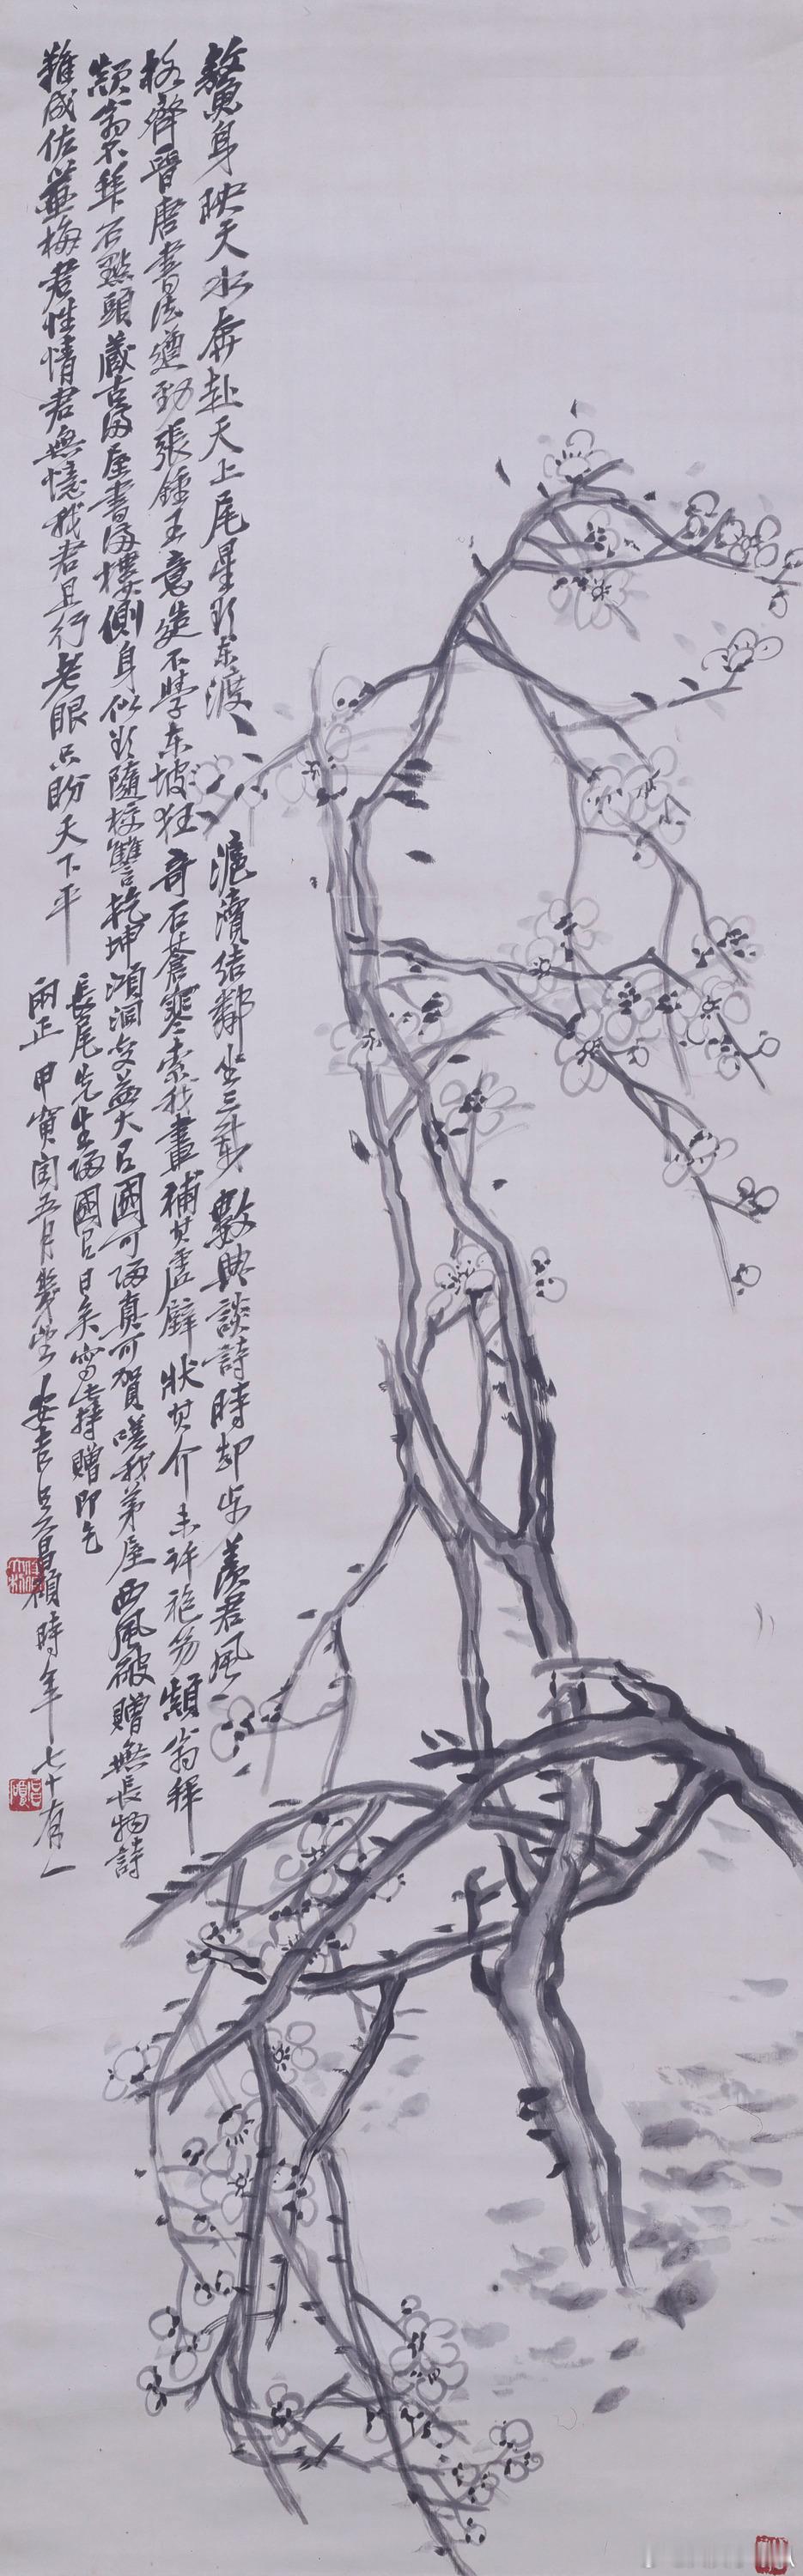 鰲身映天水奔赴天上尾星形東渡滬瀆結鄰坐三新數典談詩時却步羨君風
格齊晉唐書法遒勁張鍾王意造不學東坡狂奇石蒼寒索我畫補其虛壁狀其介未許袍笏顛翁拜
顛翁不拜石點頭藏古海屋書海樓側身似形隨校讎乾坤澒洞交益大君國可歸真可賀嗟我茅屋西風破贈無長物詩
難成佐以畫梅君性情君無憶我君且行老眼只盼天下平
長尾先生歸國有日矣寫此持贈即乞
兩正甲寅閏五月幾望安吉吳昌碩時年七十有一